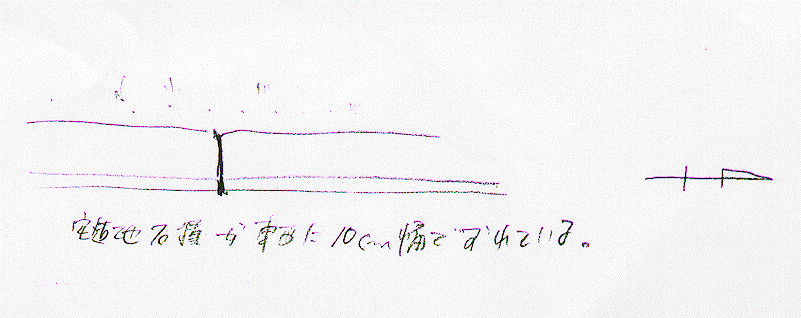 宅地石積が東西に10cm幅でずれている。